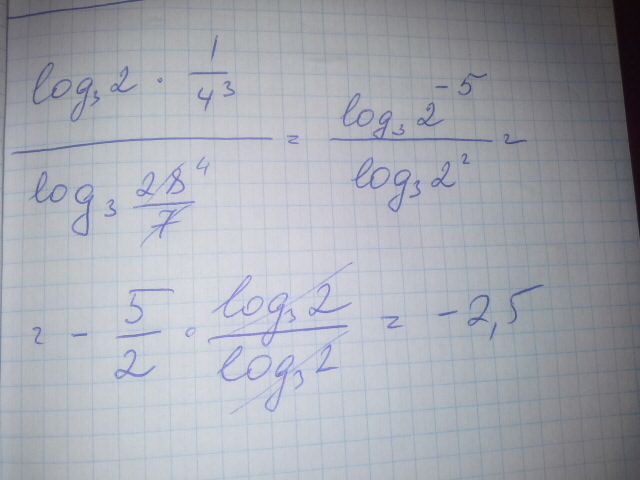 log₃ 2 · 1/4³ / log₃ 28/7 ⁴ = log₃ 2⁻⁵ / log₃ 2² =
= - 5/2 · log₃ 2 / log₃ 2 = -2,5